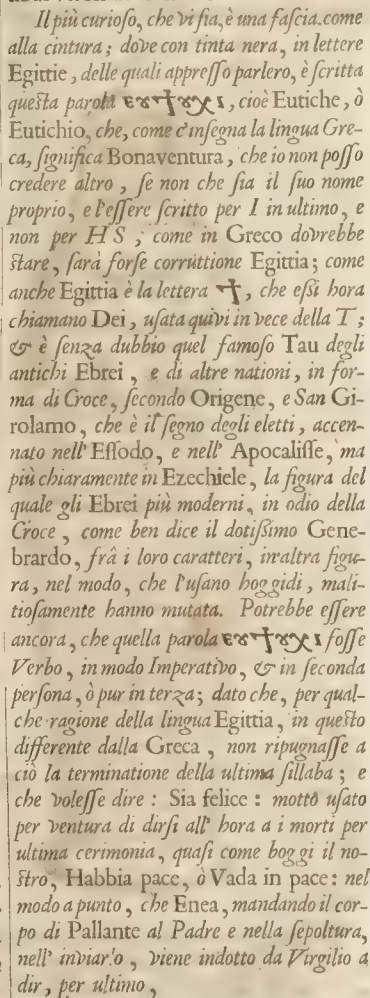 Il più curioſo, che vi ſia, è una faſcia come
alla cintura; dove con tinta nera, in lettere
Egittie, delle quali appreſſo parlero, è ſcritta
queſta parola ⲉⲩϯⲩⲭⲓ, cioè Eutiche, ò
Eutichio, che, come c'inſegna la lingua Gre-
ca, ſignifica Bonaventura, che io non poſſo
credere altro, ſe non che ſia il ſuo nome
proprio, e l'eſſere ſcritto per I in ultimo, e
non per H S, come in Greco dovrebbe
ſtare, ſarà forſe corruttione Egittia; come
anche Egittia è la lettera ϯ, che eſsi hora
chiamano Dei, uſata quivi in vece della T;
& è ſenza dubbio quel famoſo Tau degli
antichi Ebrei, e di altre nationi, in for-
ma di Croce, ſecondo Origene, e San Gi-
rolamo, che è il ſegno degli eletti, accen-
nato nell' Eſſodo, e nell' Apocaliſſe, ma
più chiaramente in Ezechiele, la figura del
quale gli Ebrei più moderni, in odio della
Croce, come ben dice il dotiſsimo Gene-
brardo, frà i loro caratteri, in altra figu-
ra, nel modo, che l'uſano hoggidi, mali-
tioſamente hanno mutata. Potrebbe eſſere
ancora, che quella parola ⲉⲩϯⲩⲭⲓ foſſe
Verbo, in modo Imperativo, & in ſeconda
perſona, ò pur in terza; dato che, per qual-
che ragione della lingua Egittia, in queſto
differente dalla Greca, non ripugnaſſe a
ciò la terminatione della ultima ſillaba; e
che voleſſe dire: Sia felice: motto uſato
per ventura di dirſi all' hora a i morti per
ultima cerimonia, quaſi come hoggi il no-
ſtro, Habbia pace, ò Vada in pace: nel
modo a punto, che Enea, mandando il cor-
po di Pallante al Padre e nella ſepoltura,
nell' inviarlo, viene indotto da Virgilio a
dir, per ultimo,